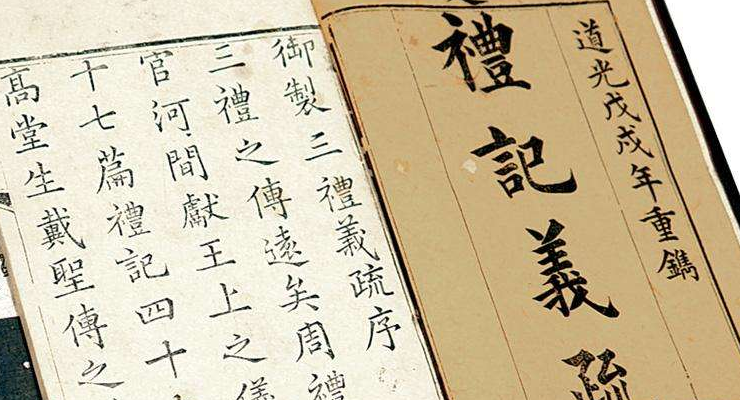 道光戊戌年重鐫
禮記義疏
御製三禮義疏序
三禮之傳遠矣周禮
官河間獻王上之儀
十七篇禮記四十
高堂生戴聖傳之